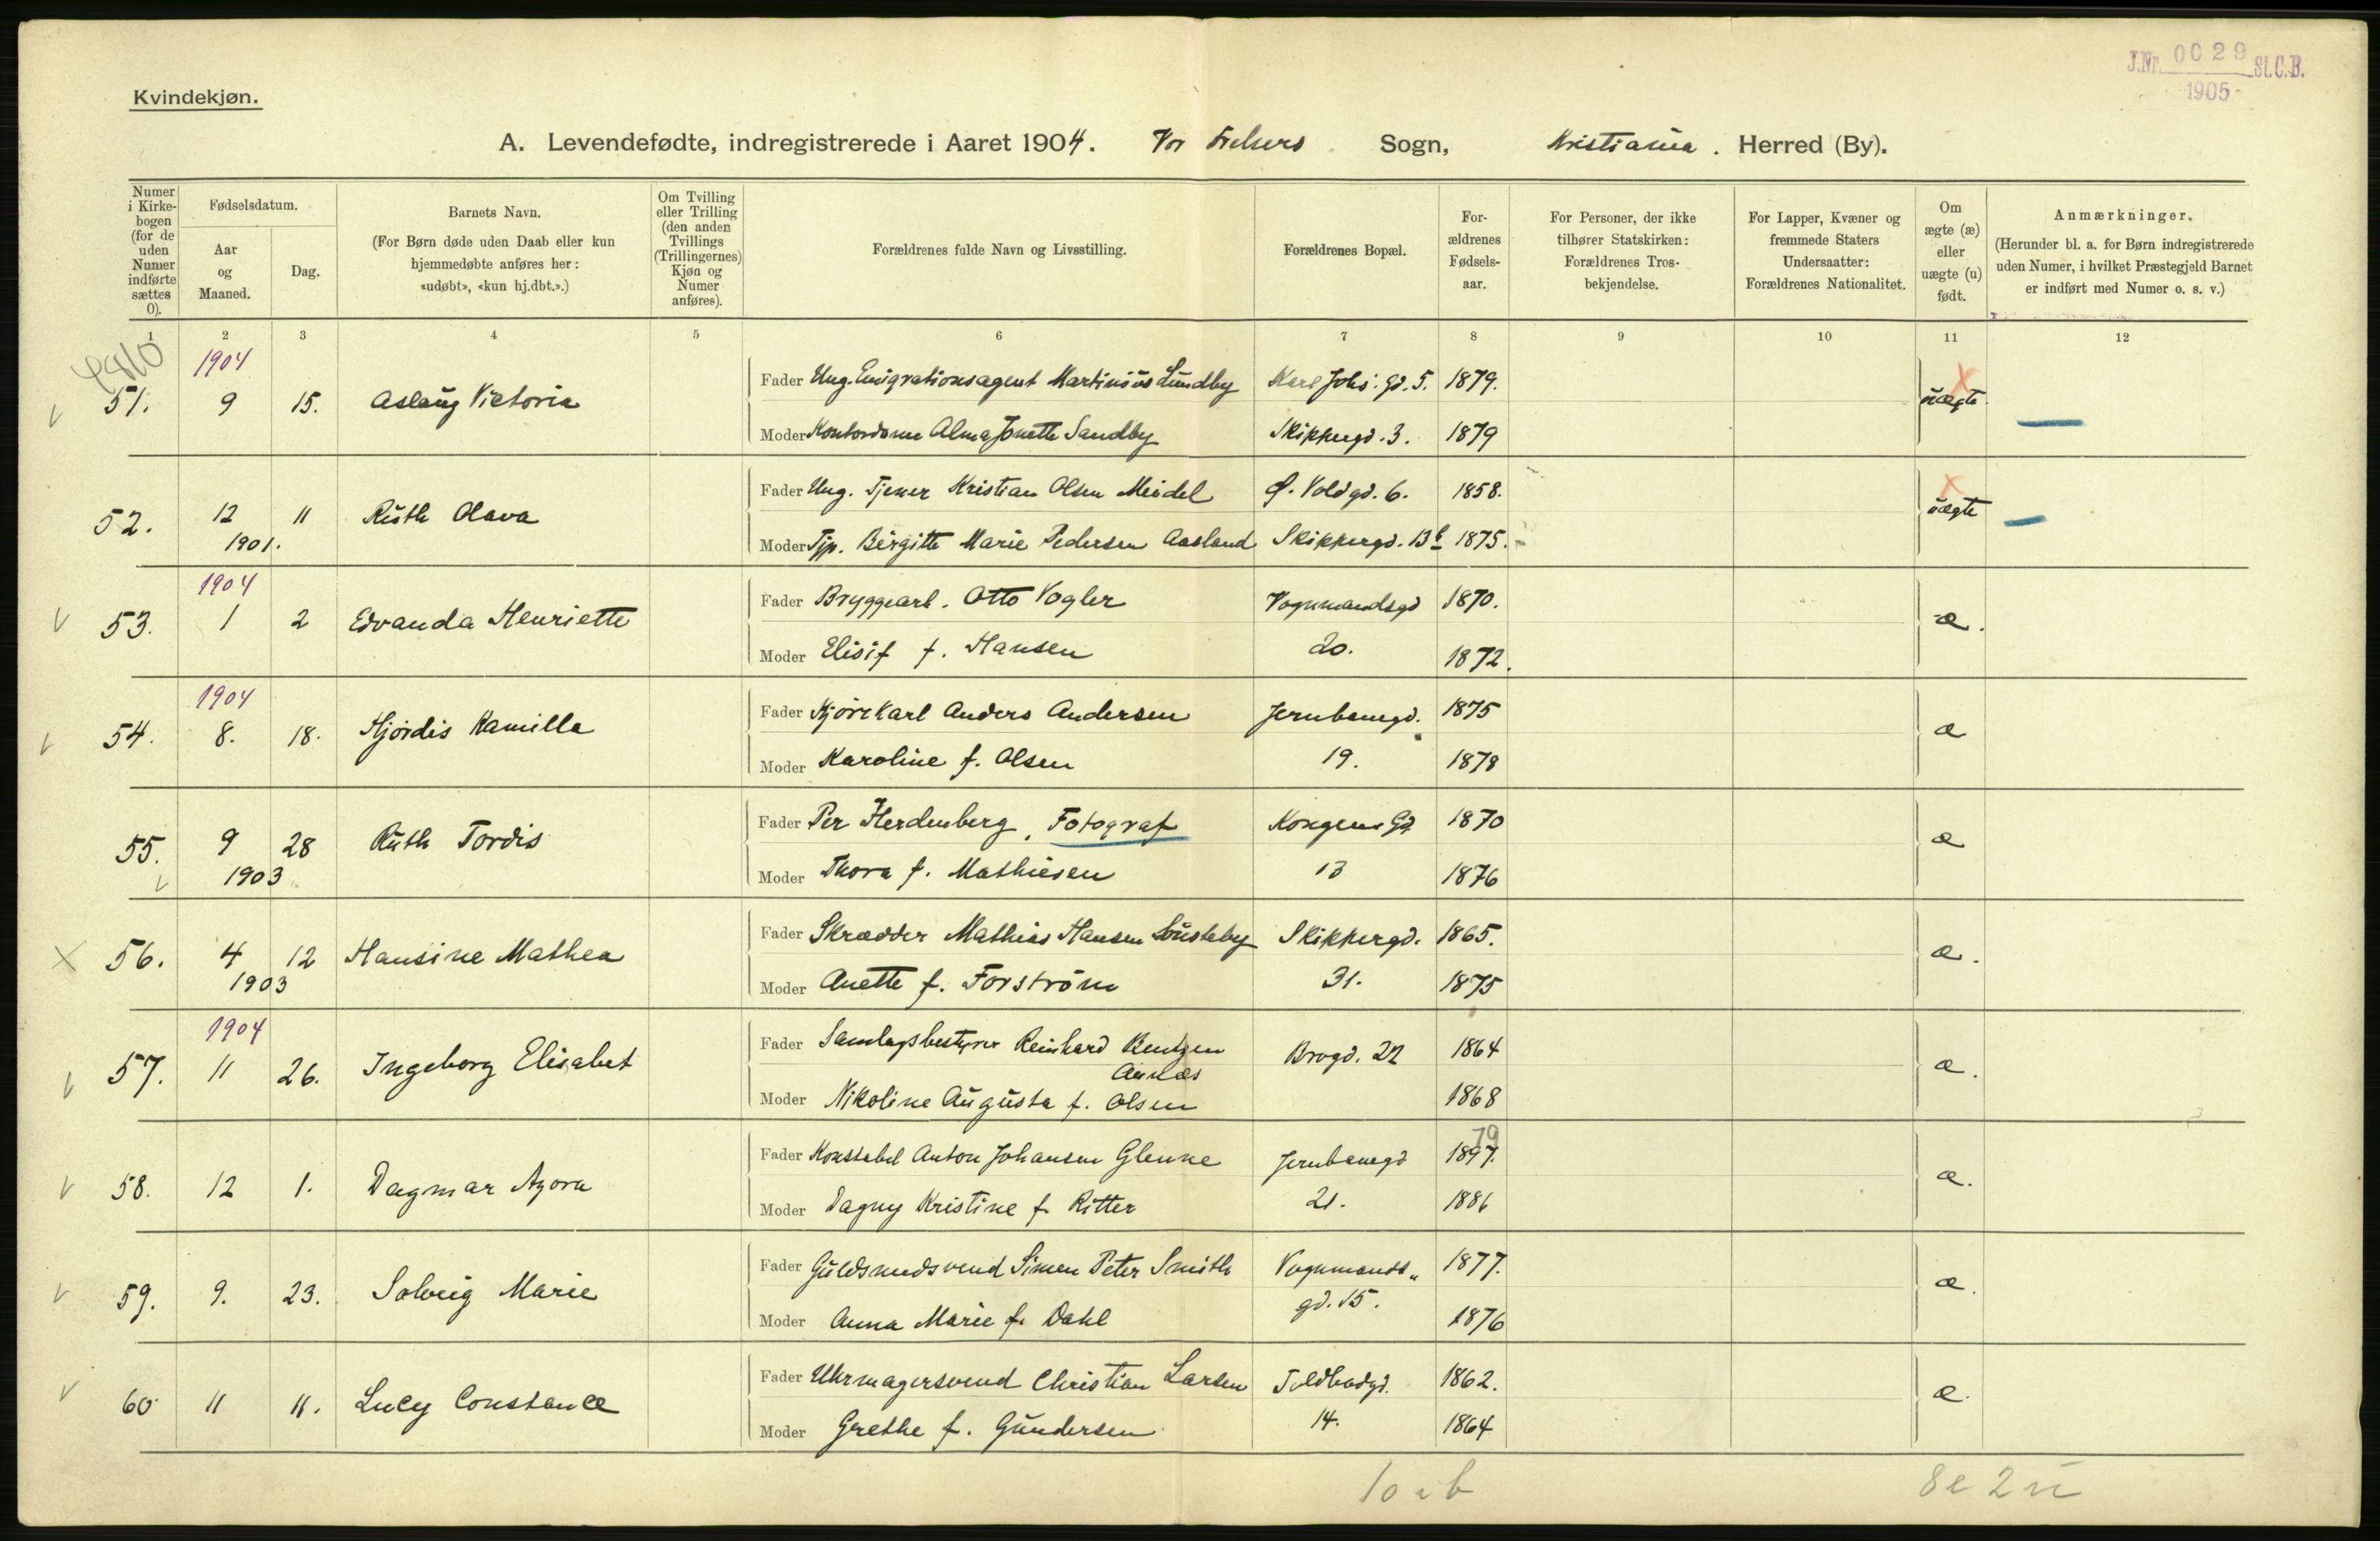 J.Nr. 0029 St.C.B.
1905
Kvindekjøn.
A. Levendefødte, indregistrerede i Aaret 1904. Vor Frelsers Sogn, Kristiania. Herred (By).
Numer i Kirkebogen (for de uden Numer indførte sættes 0).
Fødselsdatum.
Aar og Maaned.
Dag.
Barnets Navn.
(For Børn døde uden Daab eller kun hjemmedøbte anføres her: «udøbt», «kun hj.dbt.».)
Om Tvilling eller Trilling (den anden Tvillings (Trillingernes) Kjøn og Numer anføres).
Forældrenes fulde Navn og Livsstilling.
Forældrenes Bopæl.
Forældrenes Fødselsaar.
For Personer, der ikke tilhører Statskirken: Forældrenes Trosbekjendelse.
For Lapper, Kvæner og fremmede Staters Undersaatter: Forældrenes Nationalitet.
Om ægte (æ) eller uægte (u) født.
Anmærkninger.
(Herunder bl. a. for Børn indregistrerede uden Numer, i hvilket Præstegjeld Barnet er indført med Numer o. s. v.)
1 2 3 4 5 6 7 8 9 10 11 12
1904
51. 9 15. Aslaug Victoria
Fader Ung. Emigrationsagent Martinius Lundby Karl Johs. Gd. 5. 1879. uægte
Moder Kontordame Alma Jonette Sandby Skippergd. 3. 1879
52. 12 11 Ruth Olava
1901.
Fader Ung. Tjener Kristian Olsen Meidel Ø. Voldgd. 6. 1858. uægte
Moder Tjp. Birgitte Marie Pedersen Aasland Skippergd. 13 b 1875.
1904
53. 1 2 Edvanda Henriette
Fader Bryggearb. Otto Vogler Vognmandsgd 1870. æ.
Moder Elisif f. Hansen 20. 1872.
1904
54. 8. 18. Hjördis Kamilla
Fader Kjörekarl Anders Andersen Jernbanegd. 1875 æ
Moder Karoline f. Olsen 19. 1878
55. 9 28 Ruth Tordis
1903
Fader Per Herdenberg, Fotograf Kongens Gd 1870 æ
Moder Thora f. Mathiesen 13 1876
56. 4 12 Hansine Mathea
1903
Fader Skrædder Mathias Hansen Skippergd. 1865. æ.
Moder Anette f. Forström 31. 1875
1904
57. 11 26. Ingeborg Elisabet
Fader Samlagsbestyrer Reinhard Bentzen Aunæs Brogd. 22 1864 æ.
Moder Nikoline Augusta f. Olsen 1868
58. 12 1. Dagmar Azora
Fader Konstabel Anton Johansen Glenne Jernbanegd 1897. 79 æ.
Moder Dagny Kristine f. Ritter 21. 1881
59. 9. 23. Solveig Marie
Fader Guldsmedsvend Simen Peter Smith Vognmands- 1877. æ.
Moder Anna Marie f. Dahl gd. 15. 1876
60. 11 11. Lucy Constance
Fader Uhrmagersvend Christian Larsen Toldbodgd. 1862. æ.
Moder Grethe f. Gundersen 14. 1864
8e 2u